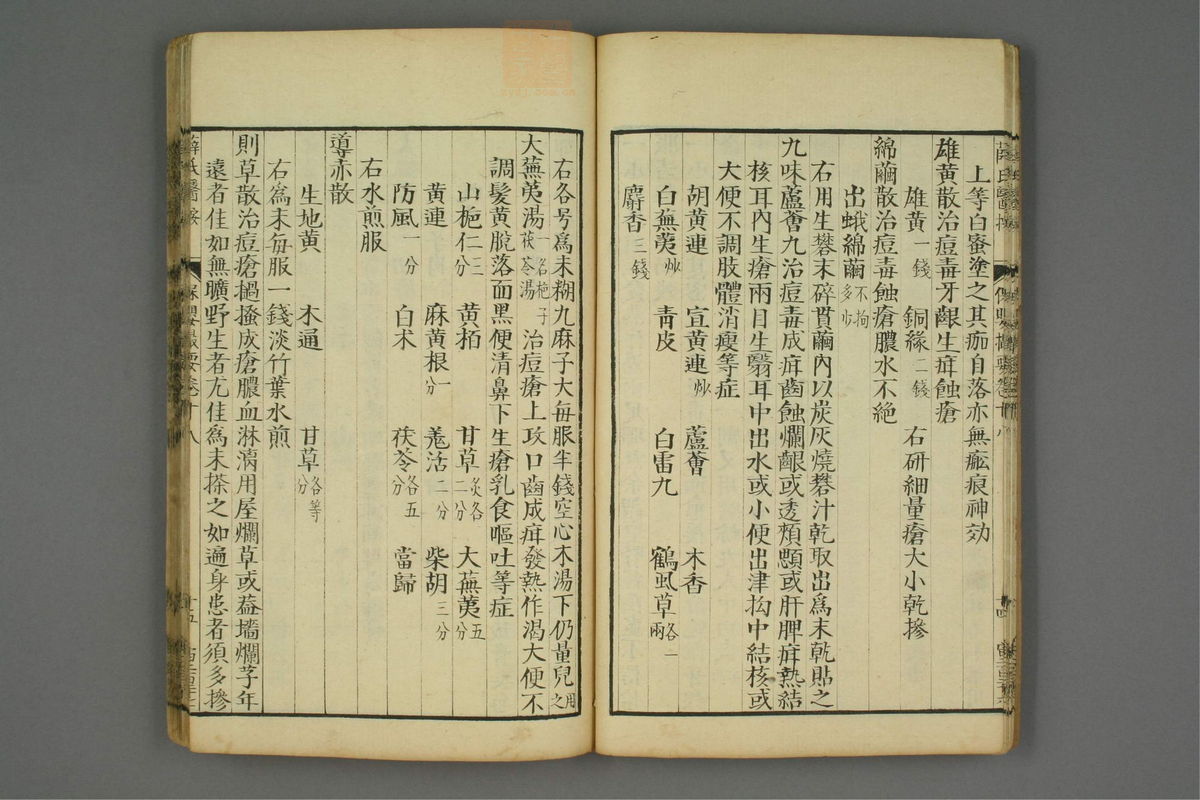 上等白蜜塗之其痂自落亦無瘢痕神効
雄黃散治痘毒牙齦生疳蝕瘡
雄黃一錢 銅綠二錢 右研細量瘡大小乾摻
綿繭散治痘毒蝕瘡膿水不絶
出蛾綿繭不拘多少
右用生礬末碎貫繭內以炭灰燒礬汁乾取出爲末乾貼之
九味蘆薈九治痘毒成疳齒蝕爛齦或透頰顋或肝脾疳熱結
核耳內生瘡兩目生翳耳中出水或小便出津拘中結核或
大便不調肢體消瘦等症
胡黃連 宣黃連炒 蘆薈 木香
白蕪荑炒 青皮 白雷九 鶴虱草各一兩
麝香三錢
右各另爲末糊九麻子大每服半錢空心木湯下仍量兒用之
大蕪荑湯一名梔子茯苓湯 治痘瘡上攻口齒成疳發熱作渴大便不
調髮黃脫落面黑便清鼻下生瘡乳食嘔吐等症
山梔仁三分 黃栢 甘草炙各二分 大蕪荑五分
黃連 麻黃根一分 羌活二分 柴胡三分
防風一分 白术 茯苓各五分 當歸
右水煎服
導赤散
生地黃 木通 甘草各等分
右爲末每服一錢淡竹葉水煎
則草散治痘瘡搔成瘡膿血淋漓用屋爛草或葢墻爛草年
遠者佳如無曠野生者尤佳爲末搽之如遍身患者須多摻
薛氏醫按 保嬰撮要卷十八 十五